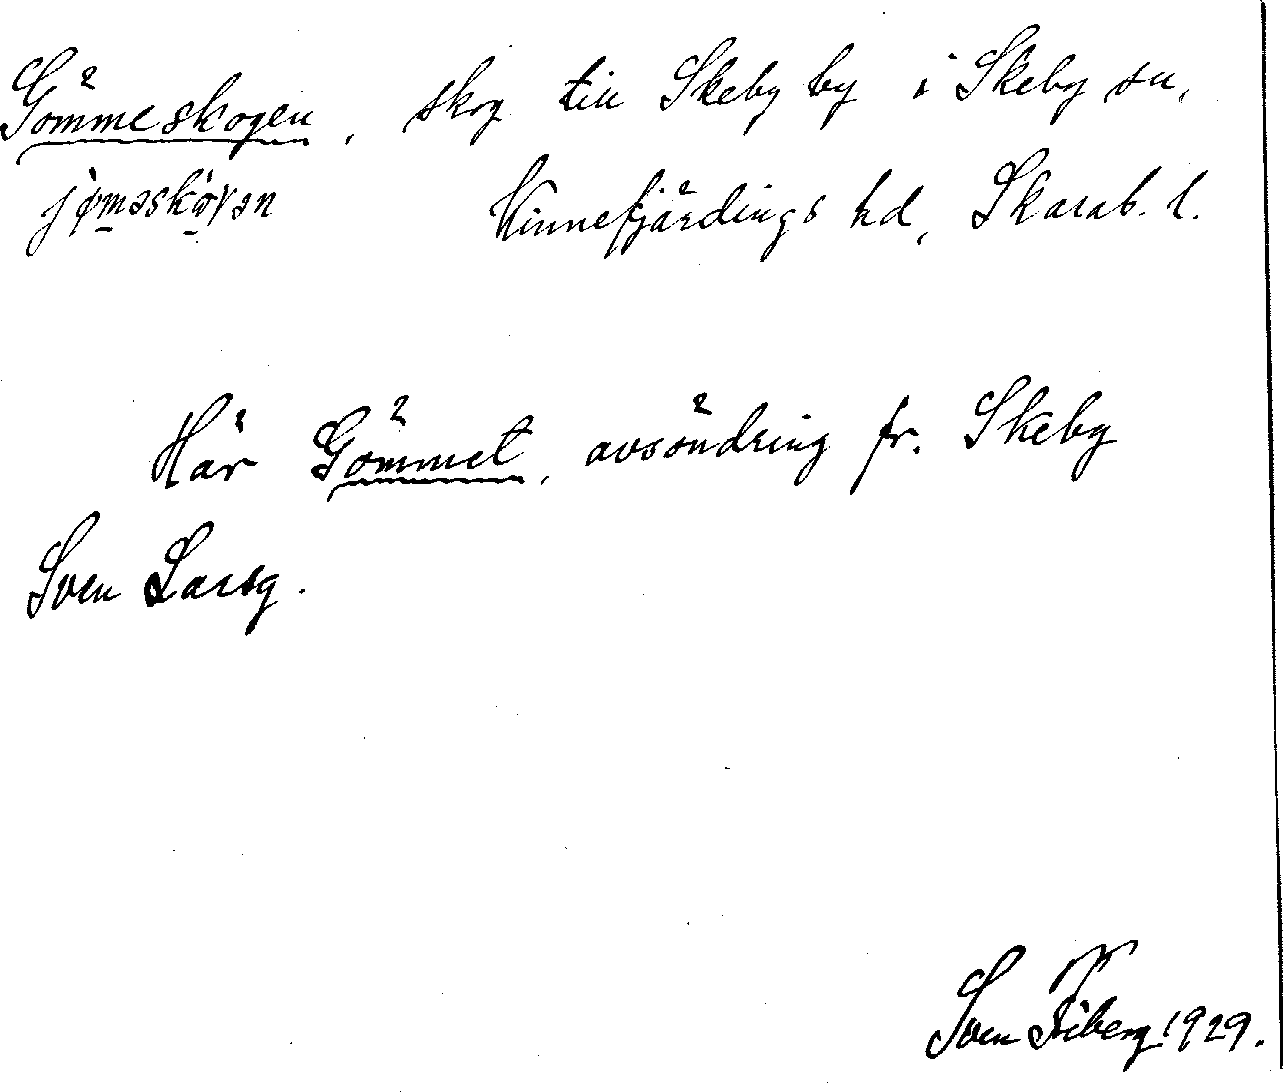 Gömmeskogen, skog till Skeby by i Skeby sn,
jøməskoγən Kinnefjärdings hd, Skarab. l.
Här Gömmet, avsöndring fr. Skeby
Sven Larsg.
Sven Fiberg 1929.